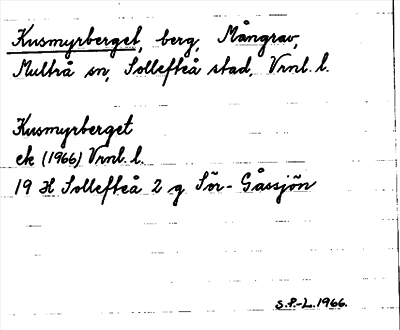 Kusmyrberget, berg, Mångrav,
Multrå sn, Sollefteå stad, Vrnl. l.
Kusmyrberget
ek (1966) Vrnl. l.
19 H Sollefteå 2 g Sör-Gåssjön
S.P.-L. 1966.